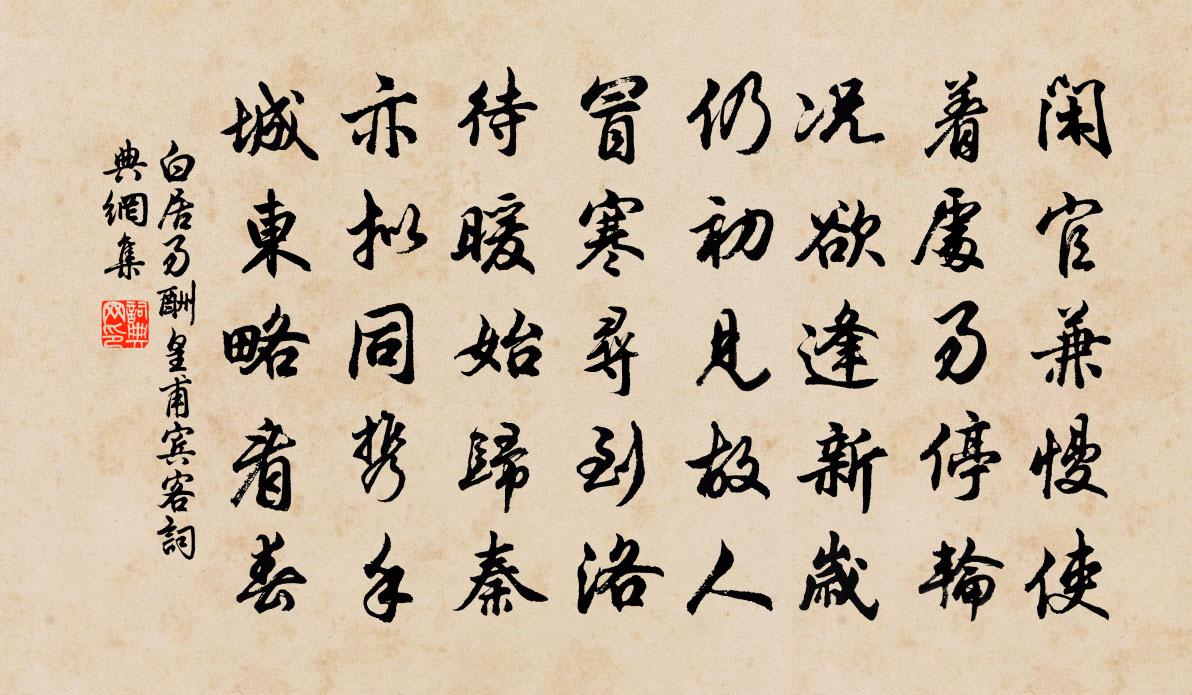 閑官兼慢使
着處易停輪
况欲逢新歲
仍初見故人
冒寒尋到洛
待暖始歸秦
亦擬同攜手
城東略看春
白居易酬皇甫宾客詞
典網集
詞典
网印